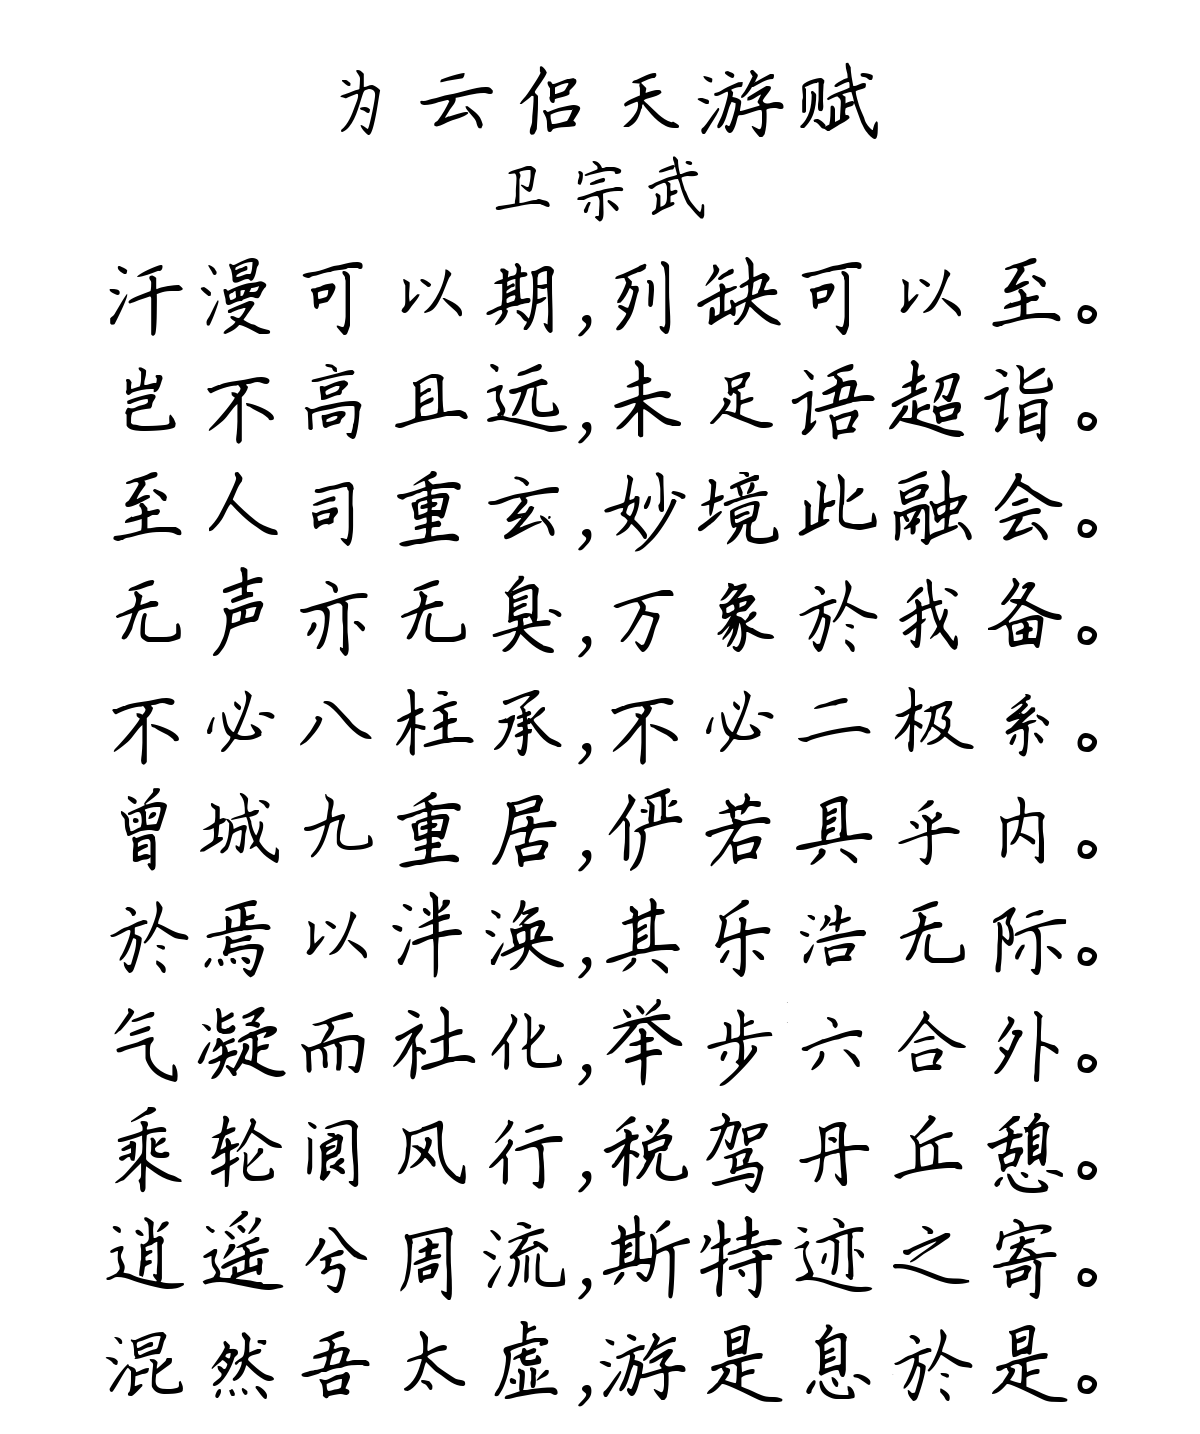 为云侣天游赋
卫宗武
汗漫可以期,列缺可以至。
岂不高且远,未足语超诣。
至人司重玄,妙境此融会。
无声亦无臭,万象於我备。
不必八柱承,不必二极系。
曾城九重居,俨若具乎内。
於焉以泮涣,其乐浩无际。
气凝而社化,举步六合外。
乘轮阆风行,税驾丹丘憩。
逍遥兮周流,斯特迹之寄。
混然吾太虚,游是息於是。